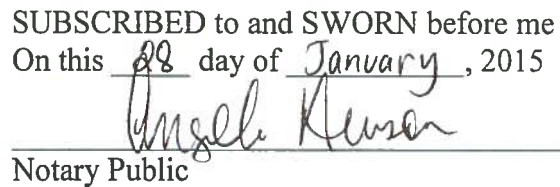 SUBSCRIBED to and SWORN before me
On this 28 day of January, 2015
Notary Public